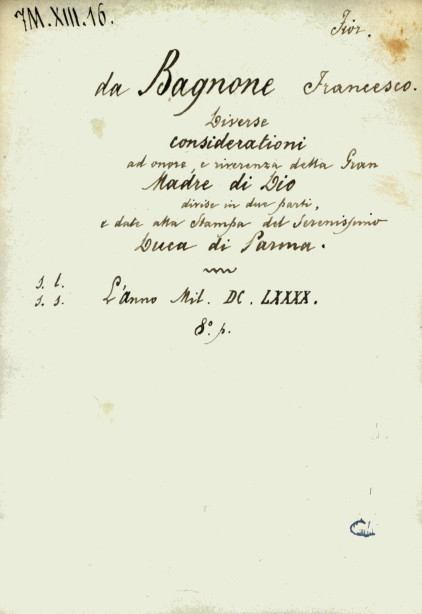 7M.XIII.16.
Fior.
da Bagnone Francesco.
Diverse
considerationi
ad onore, e riverenza della Gran
Madre di Dio
divise in due parti,
e date alla Stampa del Serenissimo
Duca di Parma.
s. l.
s. s. L'anno Mil. DC. LXXXX.
8.° p.